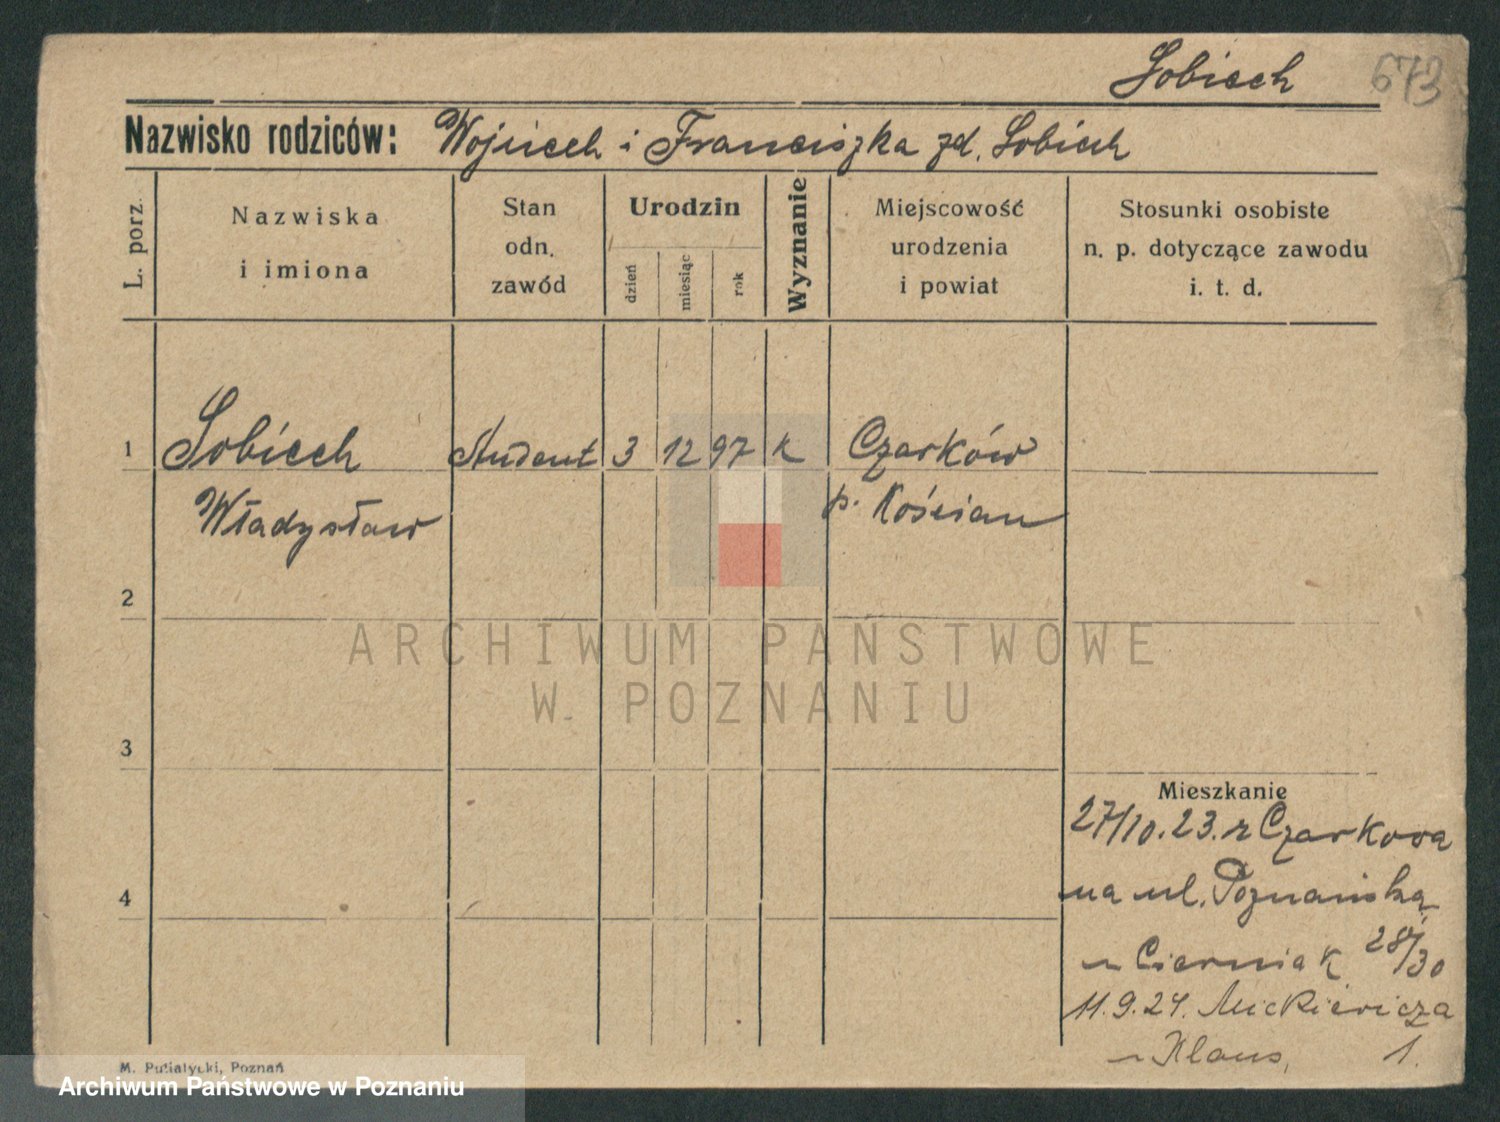 Sobiech 673
Nazwisko rodziców: Wojciech i Franciszka zd. Sobiech
L. porz.
Nazwiska
i imiona
Stan
odn.
zawód
Urodzin
dzień
miesiąc
rok
Wyznanie
Miejscowość
urodzenia
i powiat
Stosunki osobiste
n. p. dotyczące zawodu
i. t. d.
1 Sobiech Student 3 12 97 k Czarków
Władysław p. Kościan
2
ARCHIWUM PAŃSTWOWE
W POZNANIU
3
Mieszkanie
27/10.23. z Czarkowa
4
na ul. Poznańską
u Cierniak 28/30
11.9.24. Mickiewicza
u Klaus, 1.
M. Putiatycki, Poznań
Archiwum Państwowe w Poznaniu